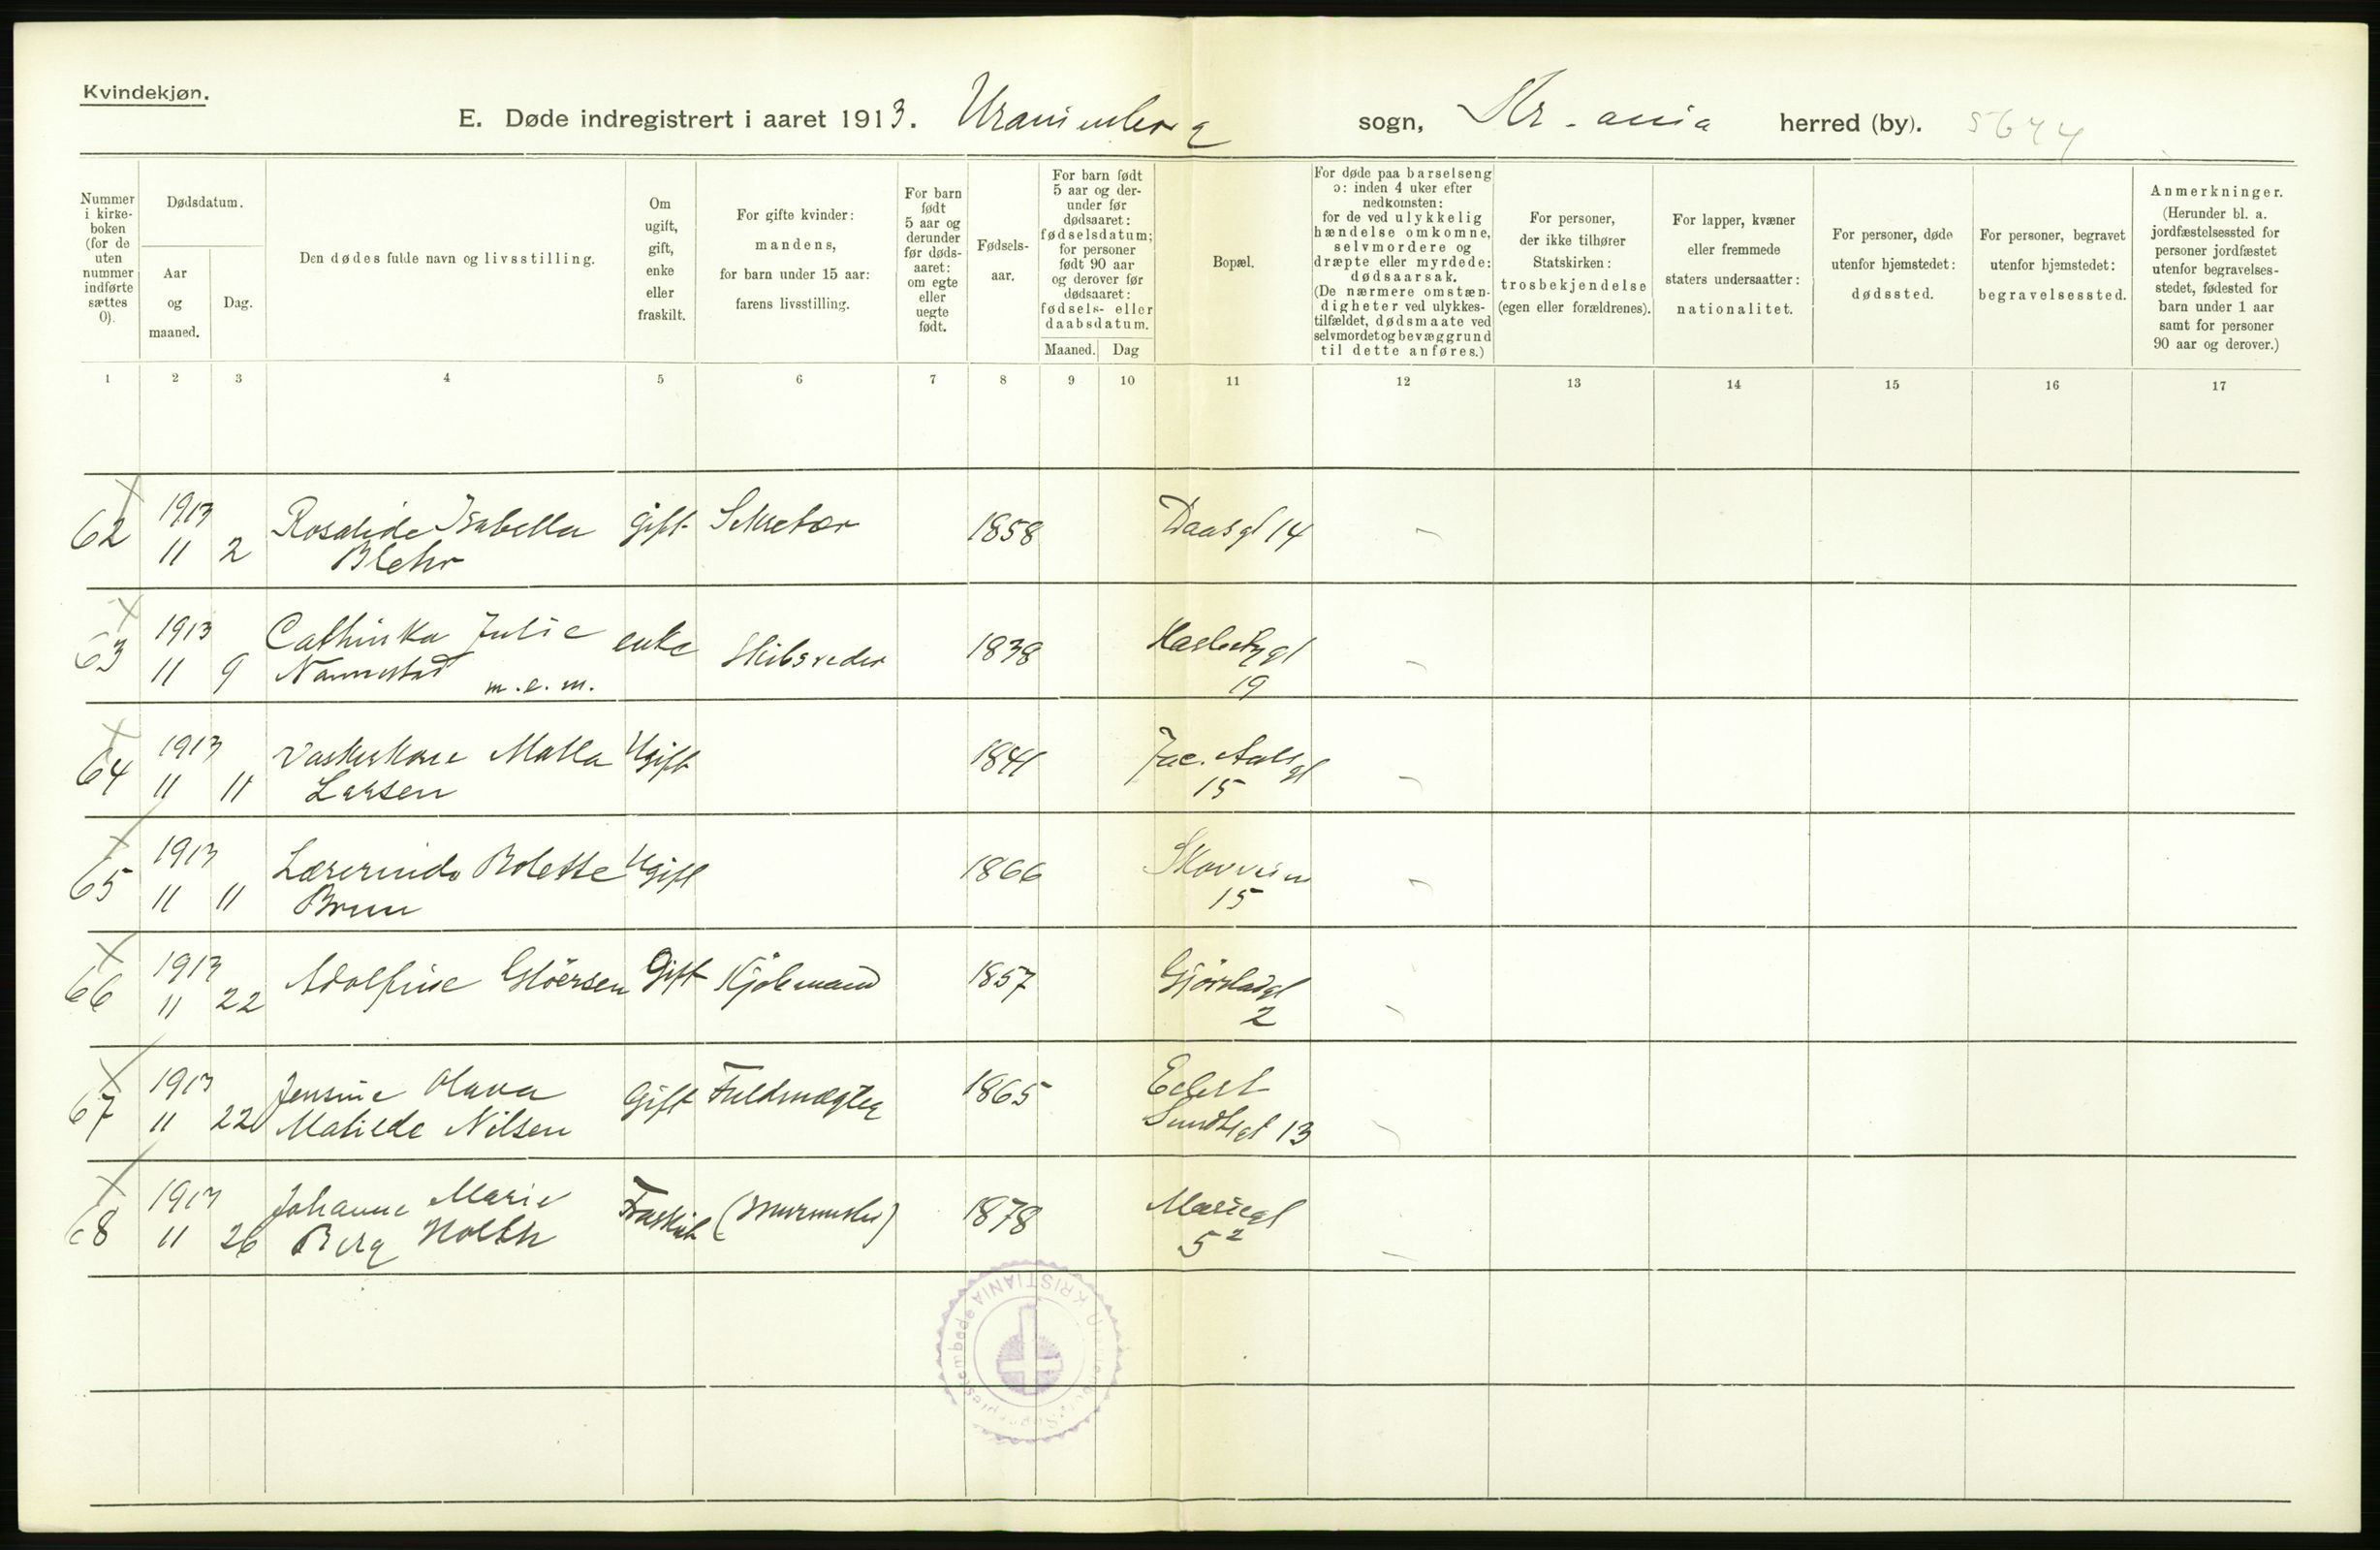 Kvindekjøn.
E. Døde indregistrert i aaret 1913. Uranienborg sogn, Kr.ania herred (by). 5644
Nummer
i kirke-
boken
(for de
uten
nummer
indførte
sættes
0).
Dødsdatum.
Aar
og
maaned.
Dag.
Den dødes fulde navn og livsstilling.
Om
ugift,
gift,
enke
eller
fraskilt.
For gifte kvinder:
mandens,
for barn under 15 aar:
farens livsstilling.
For barn
født
5 aar og
derunder
før døds-
aaret:
om egte
eller
uegte
født.
Fødsels-
aar.
For barn født
5 aar og der-
under før
dødsaaret:
fødselsdatum;
for personer
født 90 aar
og derover før
dødsaaret:
fødsels- eller
daabsdatum.
Maaned. Dag
Bopæl.
For døde paa barselseng
ɔ: inden 4 uker efter
nedkomsten:
for de ved ulykkelig
hændelse omkomne,
selvmordere og
dræpte eller myrdede:
dødsaarsak.
(De nærmere omstæn-
digheter ved ulykkes-
tilfældet, dødsmaate ved
selvmordet og bevæggrund
til dette anføres.)
For personer,
der ikke tilhører
Statskirken:
trosbekjendelse
(egen eller forældrenes).
For lapper, kvæner
eller fremmede
staters undersaatter:
nationalitet.
For personer, døde
utenfor hjemstedet:
dødssted.
For personer, begravet
utenfor hjemstedet:
begravelsessted.
Anmerkninger.
(Herunder bl. a.
jordfæstelsessted for
personer jordfæstet
utenfor begravelses-
stedet, fødested for
barn under 1 aar
samt for personer
90 aar og derover.)
1 2 3 4 5 6 7 8 9 10 11 12 13 14 15 16 17
62 1913 Rosalide Isabella gift Sekretær 1858 Daasgt 14
11 2 Blehr
63 1913 Cathinka Julie enke Skibsreder 1838
11 9 Nannestad m.e.m. 19
64 1913 Vaskekone Malla Ugift 1841 Jac. Aalls gt
11 11 Larsen 15
65 1913 Lærerinde Bolette Ugift 1866 Skovvein
11 11 Brun 15
66 1913 Adolfine Gløersen Gift Kjøbmand 1857
11 22 2
67 1913 Jensine Olava Gift Fuldmægtig 1865 Eilert
11 22 Matilde Nilsen Sundtsgt 13
68 1913 Johanne Marie Fraskilt (Murmester) 1878 Mariegt
11 26 Berg Holth 5²
Uranienborg Sogneprestembede KRISTIANIA